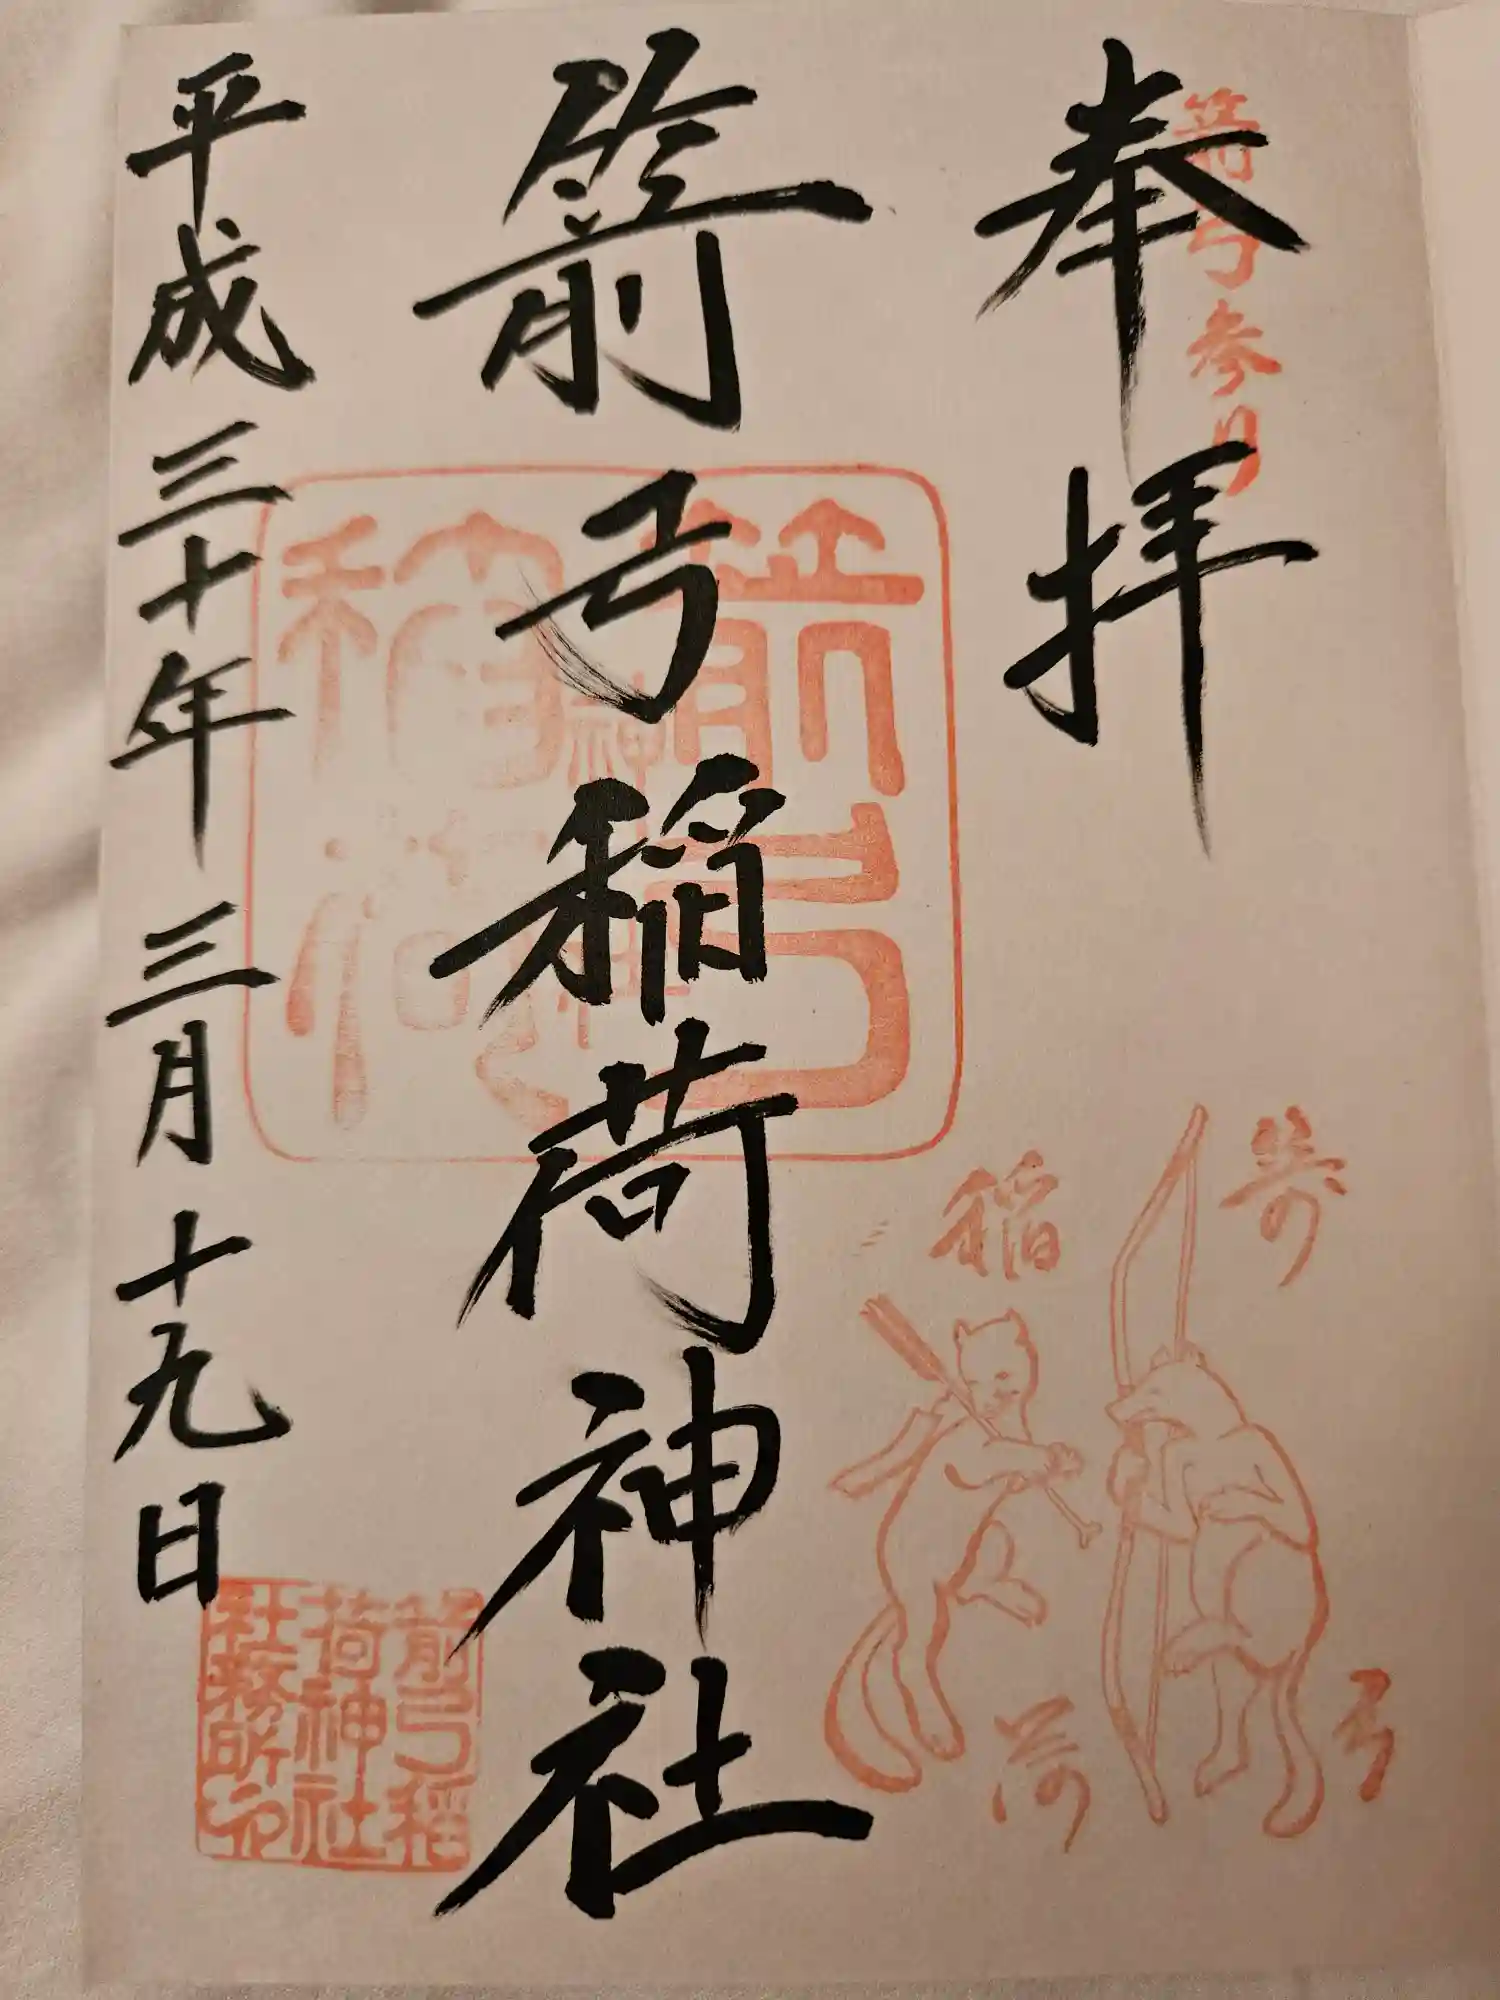 奉拝
箭弓参月
箭弓稲荷神社
平成三十年三月十九日
箭弓
稲荷
神社
箭弓
稲荷
箭弓稲
荷神社
社務所印